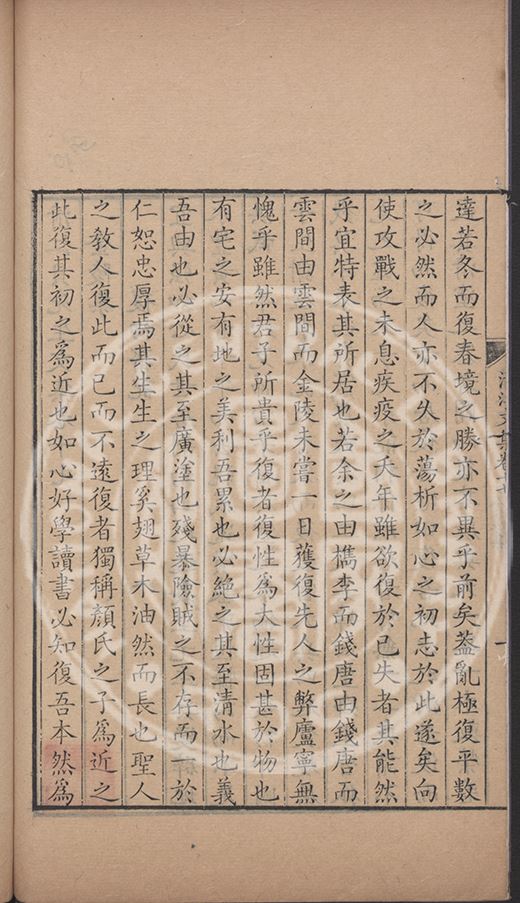 達若冬而復春境之勝亦不異乎前矣葢亂極復平數
之必然而人亦不久於蕩析如心之初志於此遂矣向
使攻戰之未息疾疫之夭年雖欲復於已失者其能然
乎宜特表其所居也若余之由檇李而錢唐由錢唐而
雲間由雲間而金陵未嘗一日獲復先人之弊廬寧無
愧乎雖然君子所貴乎復者復性為大性固甚於物也
有宅之安有地之美利吾累也必絶之其至清水也義
吾由也必從之其至廣塗也殘暴險賊之不存而一於
仁恕忠厚焉其生生之理奚翅草木油然而長也聖人
之教人復此而已而不遠復者獨稱顔氏之子為近之
此復其初之為近也如心好學讀書必知復吾本然為